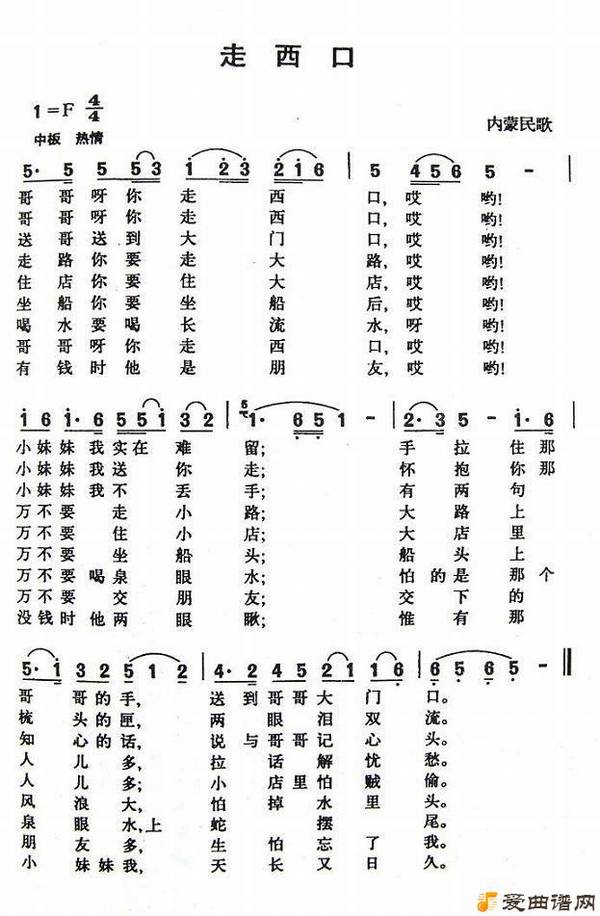 走西口
1=F 4/4
中板 热情
内蒙民歌
5· 5 5 53 1 2·3 2·16 | 5 456 5 -
哥哥呀你走西口,哎哟!
哥哥呀你走西口,哎哟!
送哥送到大门口,哎哟!
走路你要走大路,哎哟!
住店你要住大店,哎哟!
坐船你要坐船后,哎哟!
喝水要喝长流水,呀哟!
哥哥呀你走西口,哎哟!
有钱时他是朋友,哎哟!
1 6 1·6 551 32 | 1· 651 - | 2·3 5 - 1·6
小妹妹我实在难留;手拉住那
小妹妹我送你走;怀抱你那
小妹妹我不丢手;有两句
万不要走小路;大路上
万不要住小店;大店里
万不要坐船头;船头上
万不要喝泉眼水;怕的是那个
万不要交朋友;交下的
没钱时他两眼瞅;惟有那
5·1 32 5 12 | 4·2 12 41 16 | 5 65 5 - ‖
哥哥的手,送到哥哥大门口。
梳头的匣,两眼泪双流。
知心的话,说与哥哥记心头。
人儿多,拉话解忧愁。
人儿多;小店里怕贼偷。
风浪大,怕掉水里头。
泉眼水,上蛇摆尾。
朋友多,生怕忘了我。
小妹妹我,天长又日久。
爱曲谱网